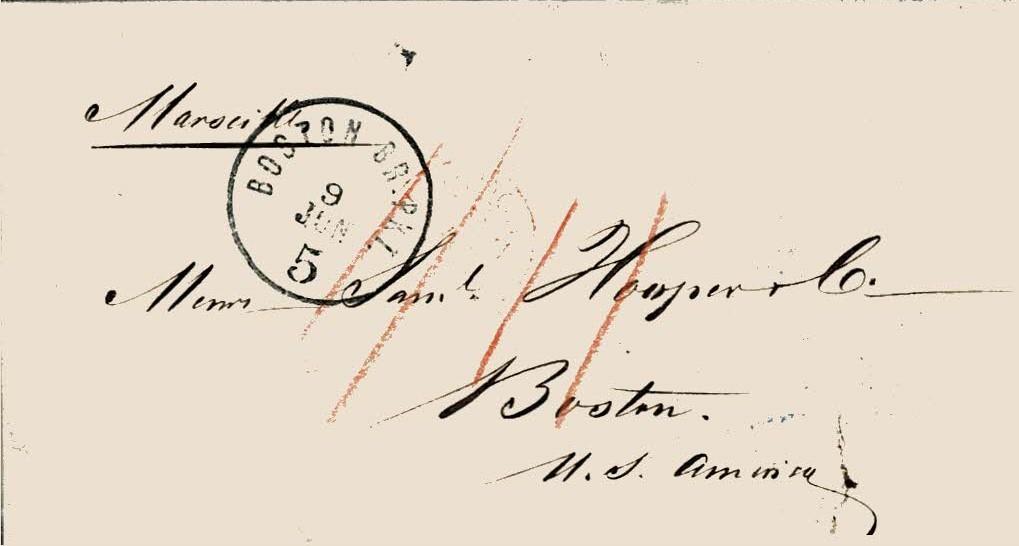 Marseille
BOSTON BR. PKT.
9
JUN
5
Messrs Saml. Hooper & Co.
Boston.
U. S. America